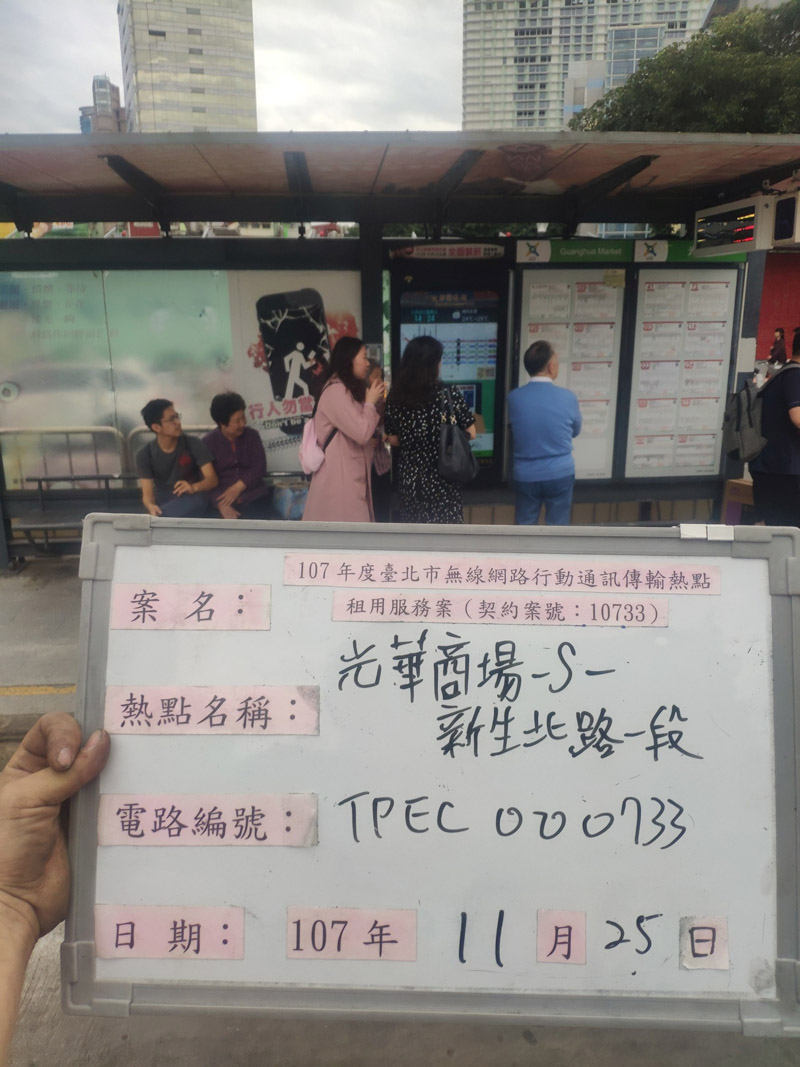 Guanghua Market
行人勿當
Don't be
案名：
107年度臺北市無線網路行動通訊傳輸熱點
租用服務案（契約案號：10733）
熱點名稱：
光華商場-S-
新生北路一段
電路編號：
TPEC 000733
日期：
107年 11月25日